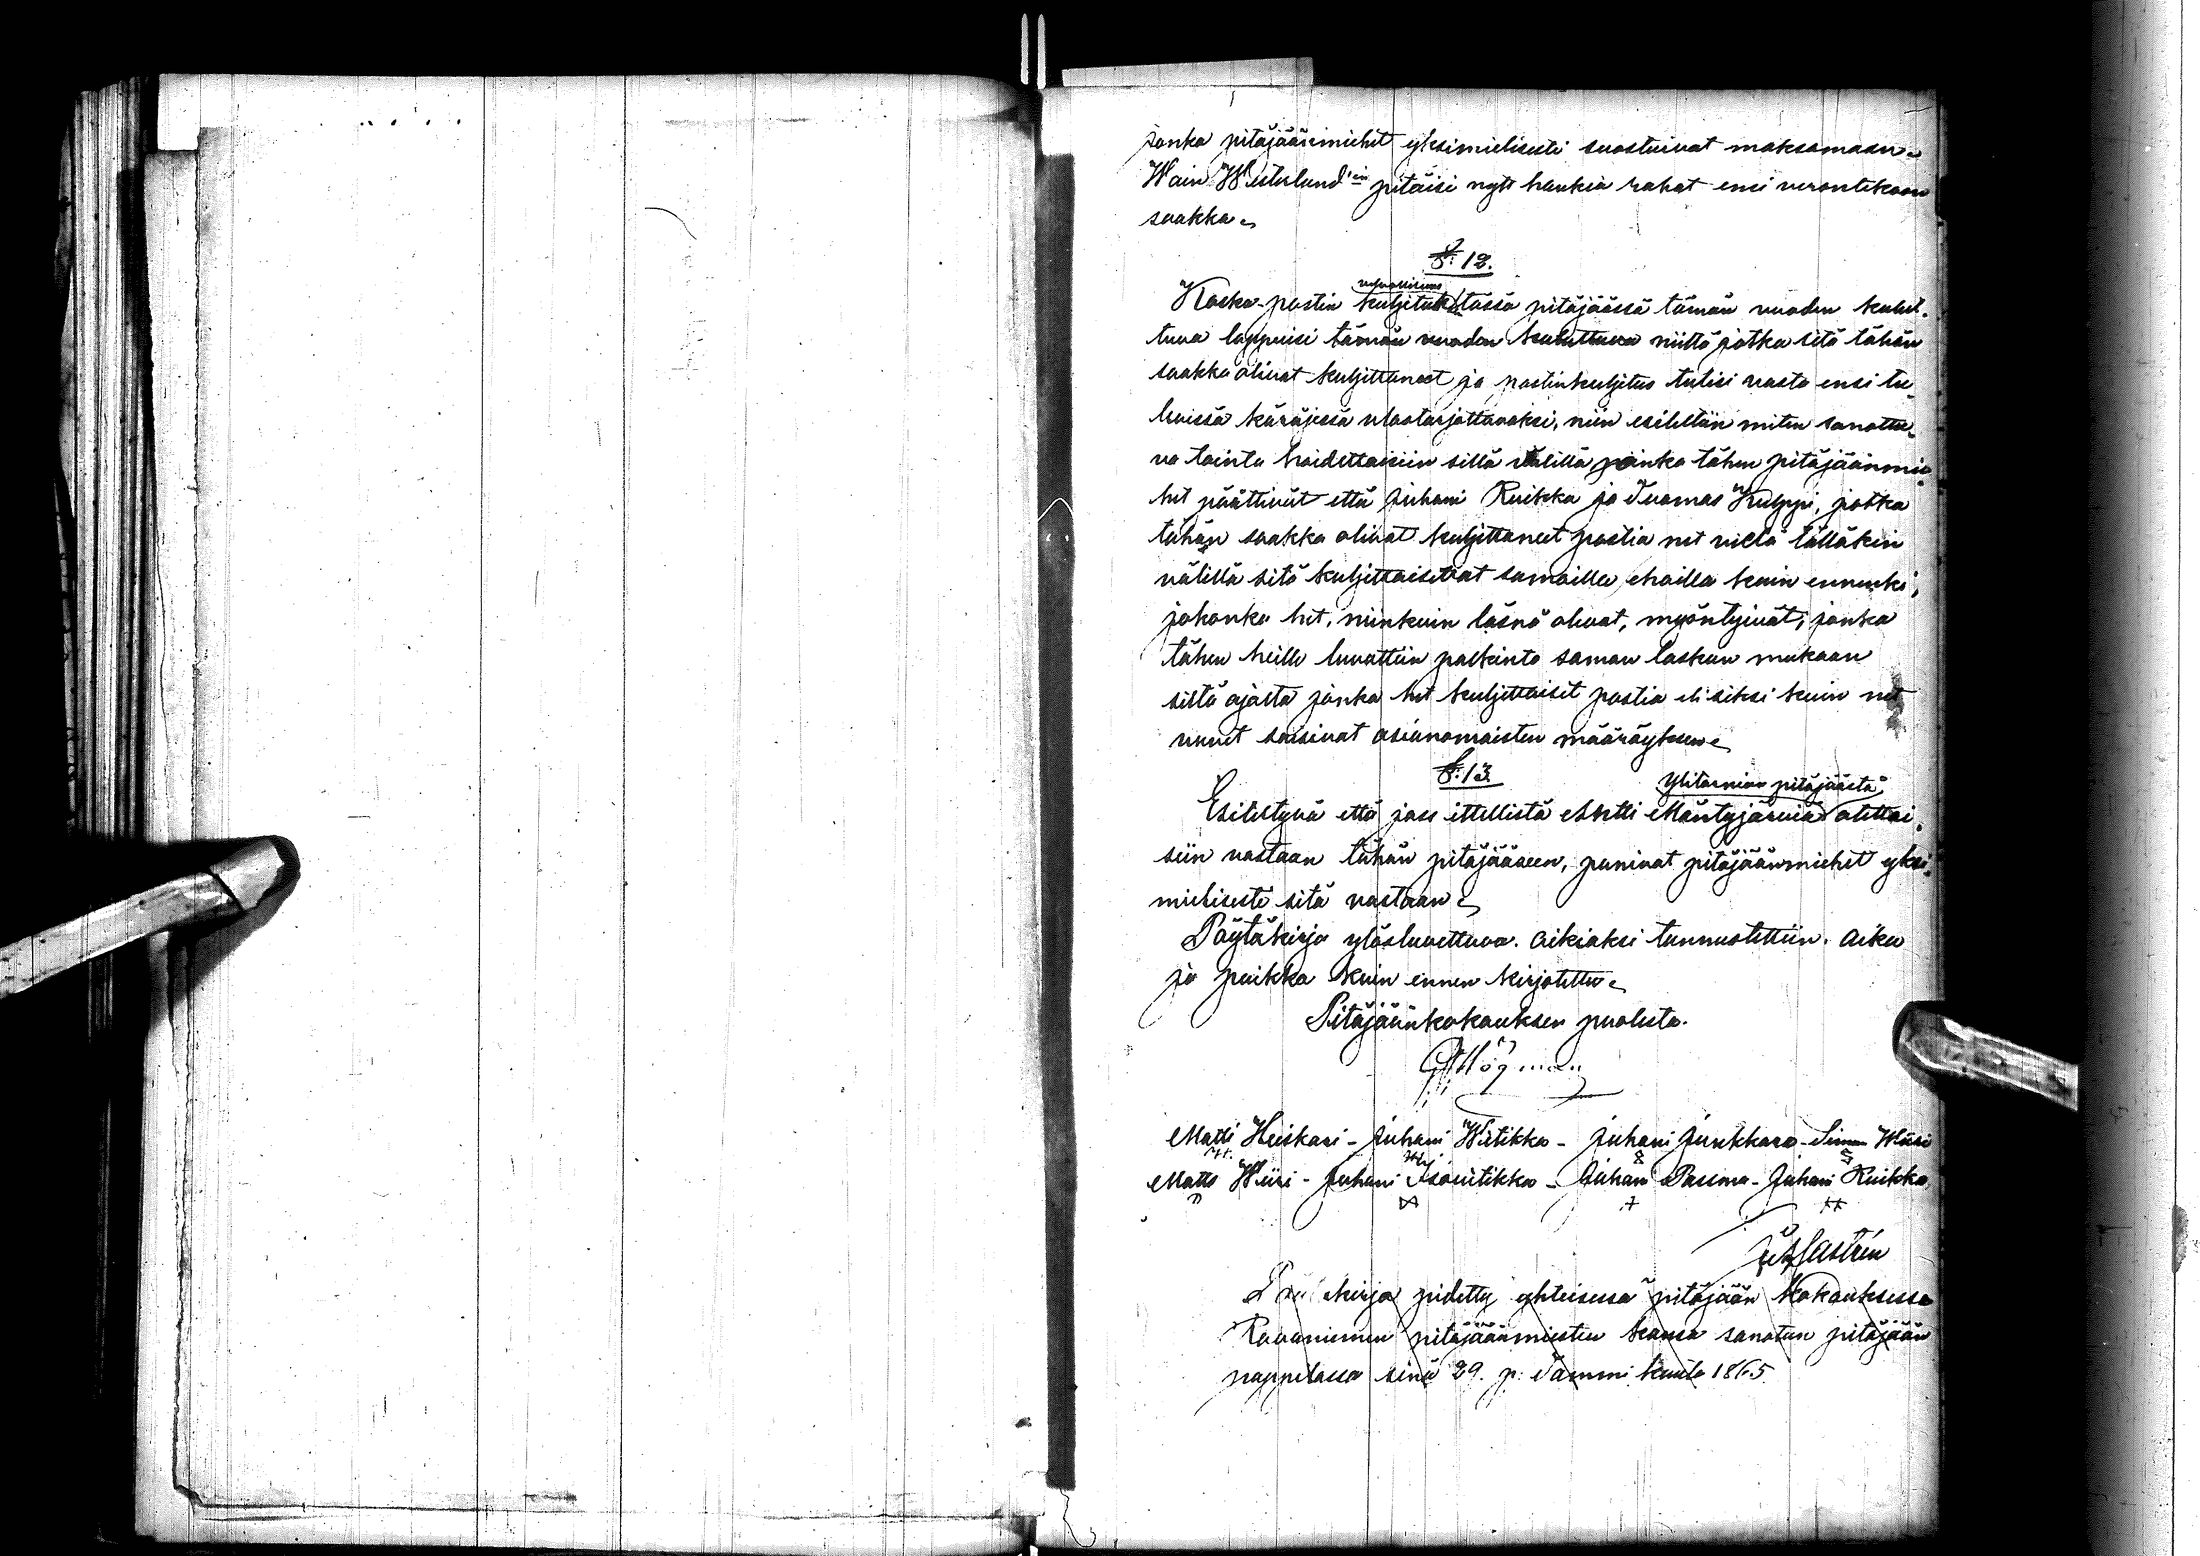 jonka pitäjäänmiehet yksimielisesti suostuivat maksamaan.
Wain Westerlund'in pitäisi nyt hankia rahat ensi verontekoon
saakka.
§: 12.
Koska postin kuljetus tässä pitäjäässä tämän vuoden kulut-
tua loppuisi tämän vuoden kuluttua niiltä jotka sitä tähän
saakka olivat kuljettaneet ja postinkuljetus tulisi vasta ensi tu-
levissa käräjissä ulostarjottavaksi, niin esiteltiin miten sanottu-
va tointa hoidettaisiin sillä välillä jonka tähen pitäjäänmie-
het päättivät että Juhani Ruikka ja Tuomas Kulppi, jotka
tähän saakka olivat kuljettaneet postia net vielä tälläkin
välillä sitä kuljettaisivat samoilla ehoilla kuin ennenki,
johonka het, niinkuin läsnä olivat, myöntyivät, jonka
tähen heille luvattiin palkinto saman laskun mukaan
siltä ajalta jonka het kuljettaisit postia eli siksi kuin net
uuvet saisivat asianomaisten määräyksen.
§: 13.
Ylitornion pitäjäästä
Esitettyvä että jos ittellistä Antti Mäntyjärviä otettai-
siin vastaan tähän pitäjääseen, panivat pitäjäänmiehet yksi-
mielisesti sitä vastaan.
Pöytäkirja ylösluvettuva. oikiaksi tunnustettiin. Aika
ja paikka kuin ennen kirjotettu.
Pitäjäänkokouksen puolesta.
Högman
Matti Heiskari - Juhani Wiitikko - Juhani Junkkara - Simon Wiiri
Matts Wiiri - Juhani Isoviitikko - Juhani Pasma - Juhani Ruikka
Castrén
kirja pidetty yhteisessä pitäjään kokouksessa
Rovaniemen pitäjäänmiesten kansa sanotun pitäjään
pappilassa sinä 29. p. Tammi kuuta 1865